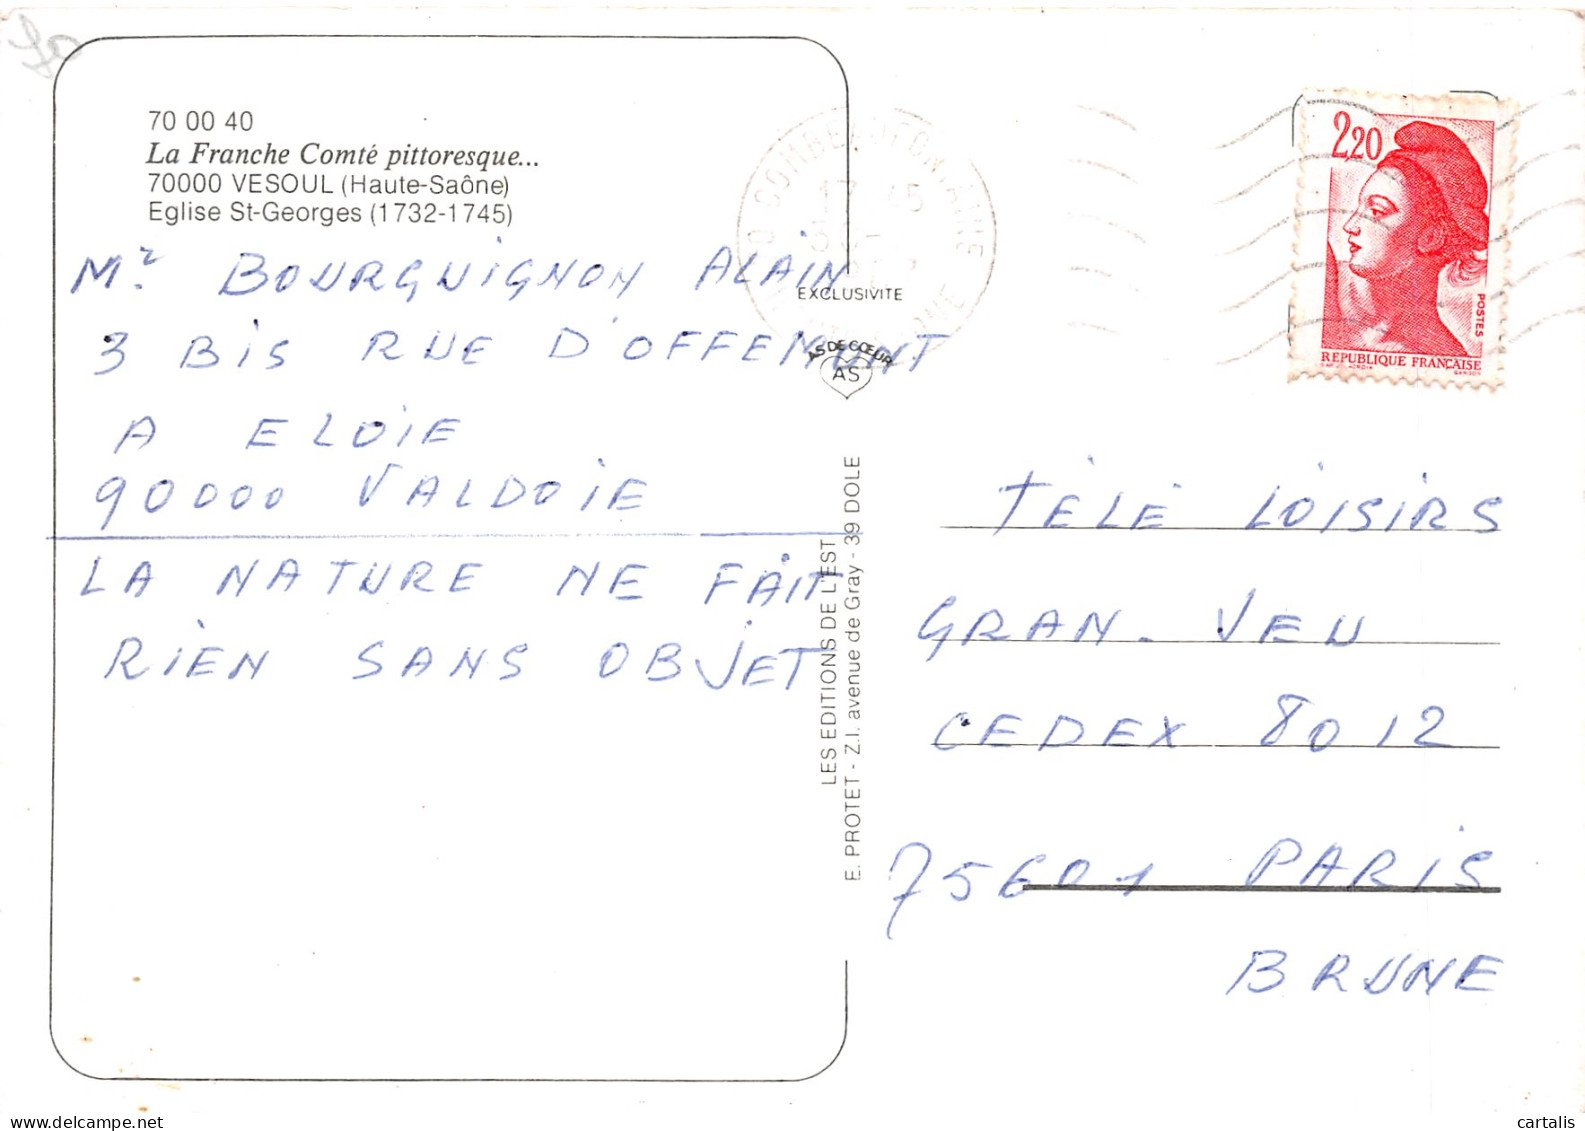 70 00 40
La Franche Comté pittoresque...
70000 VESOUL (Haute-Saône)
Eglise St-Georges (1732-1745)
Mr BOURGUIGNON ALAIN
3 BIS RUE D'OFFEMONT
A ELOIE
90000 VALDOIE
LA NATURE NE FAIT
RIEN SANS OBJET
COMBEAUFONTAINE
17 45
EXCLUSIVITE
AS DE CŒUR
AS
LES EDITIONS DE L'EST
E. PROTET - Z.I. avenue de Gray - 39 DOLE
2,20
POSTES
REPUBLIQUE FRANÇAISE
GANDON
TÉLÉ LOISIRS
GRAN. VEU
CEDEX 8012
75601 PARIS
BRUNE
www.delcampe.net
cartalis